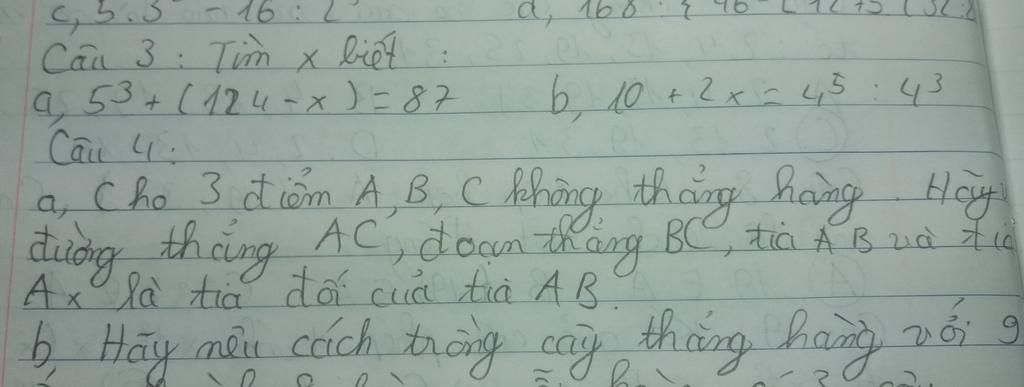 c, 5.5 - 16 : 2
d, 168 : { 46 - [ 12 + 5 ( 32 :
Câu 3 : Tìm x biết :
a, 5³ + (124 - x ) = 87 b, 10 + 2x = 4⁵ : 4³
Câu 4 :
a, Cho 3 điểm A, B, C không thẳng hàng . Hãy
đường thẳng AC, đoạn thẳng BC, tia AB và tia
Ax là tia đối của tia AB .
b, Hãy nêu cách trồng cây thẳng hàng với 9